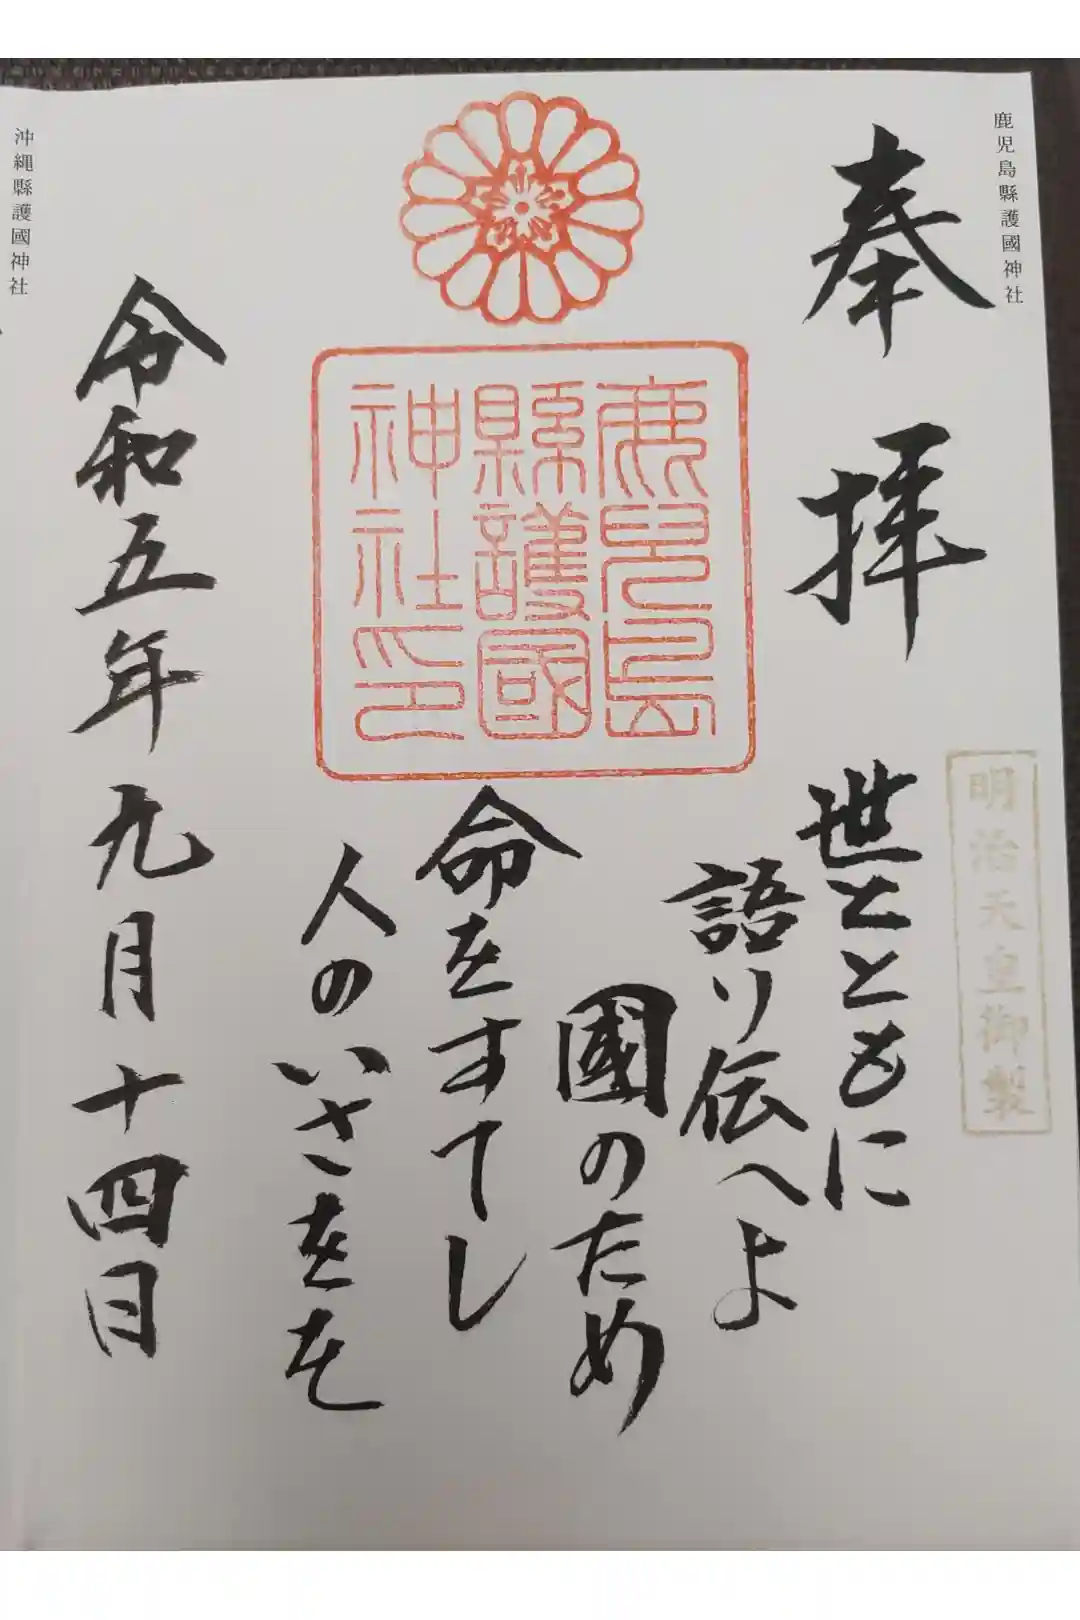 鹿児島縣護國神社
奉拝
明治天皇御製
世とともに
語り伝へよ
國のため
命をすてし
人のいさをを
鹿児島
縣護國
神社印
令和五年九月十四日
沖縄縣護國神社